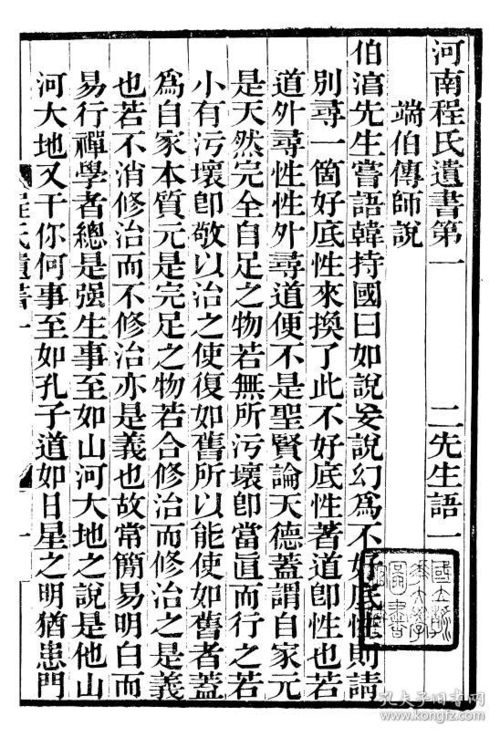 河南程氏遺書第一　二先生語一
端伯傳師說
伯淳先生嘗語韓持國曰如說妄說幻爲不好底性則請
別尋一箇好底性來換了此不好底性著道卽性也若
道外尋性性外尋道便不是聖賢論天德蓋謂自家元
是天然完全自足之物若無所污壞卽當直而行之若
小有污壞卽敬以治之使復如舊所以能使如舊者蓋
爲自家本質元是完足之物若合修治而修治之是義
也若不消修治而不修治亦是義也故常簡易明白而
易行禪學者總是强生事至如山河大地之說是他山
河大地又干你何事至如孔子道如日星之明猶患門
程氏遺書一
一
孔夫子旧书网
www.kongfz.com